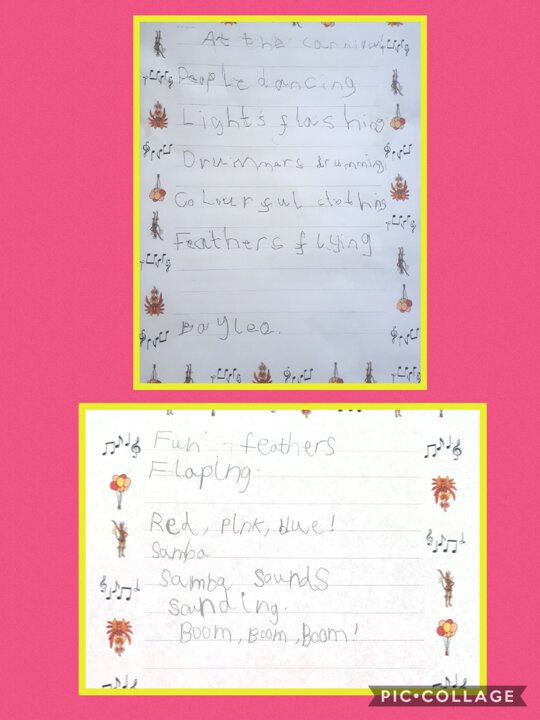 At the carnival
People dancing
Lights flashing
Drummers drumming
Colourful clothing
Feathers flying
Baylea.
Fun feathers
Flaping
Red, pink, blue!
Samba
Samba sounds
sounding.
Boom, Boom, Boom!
PIC•COLLAGE